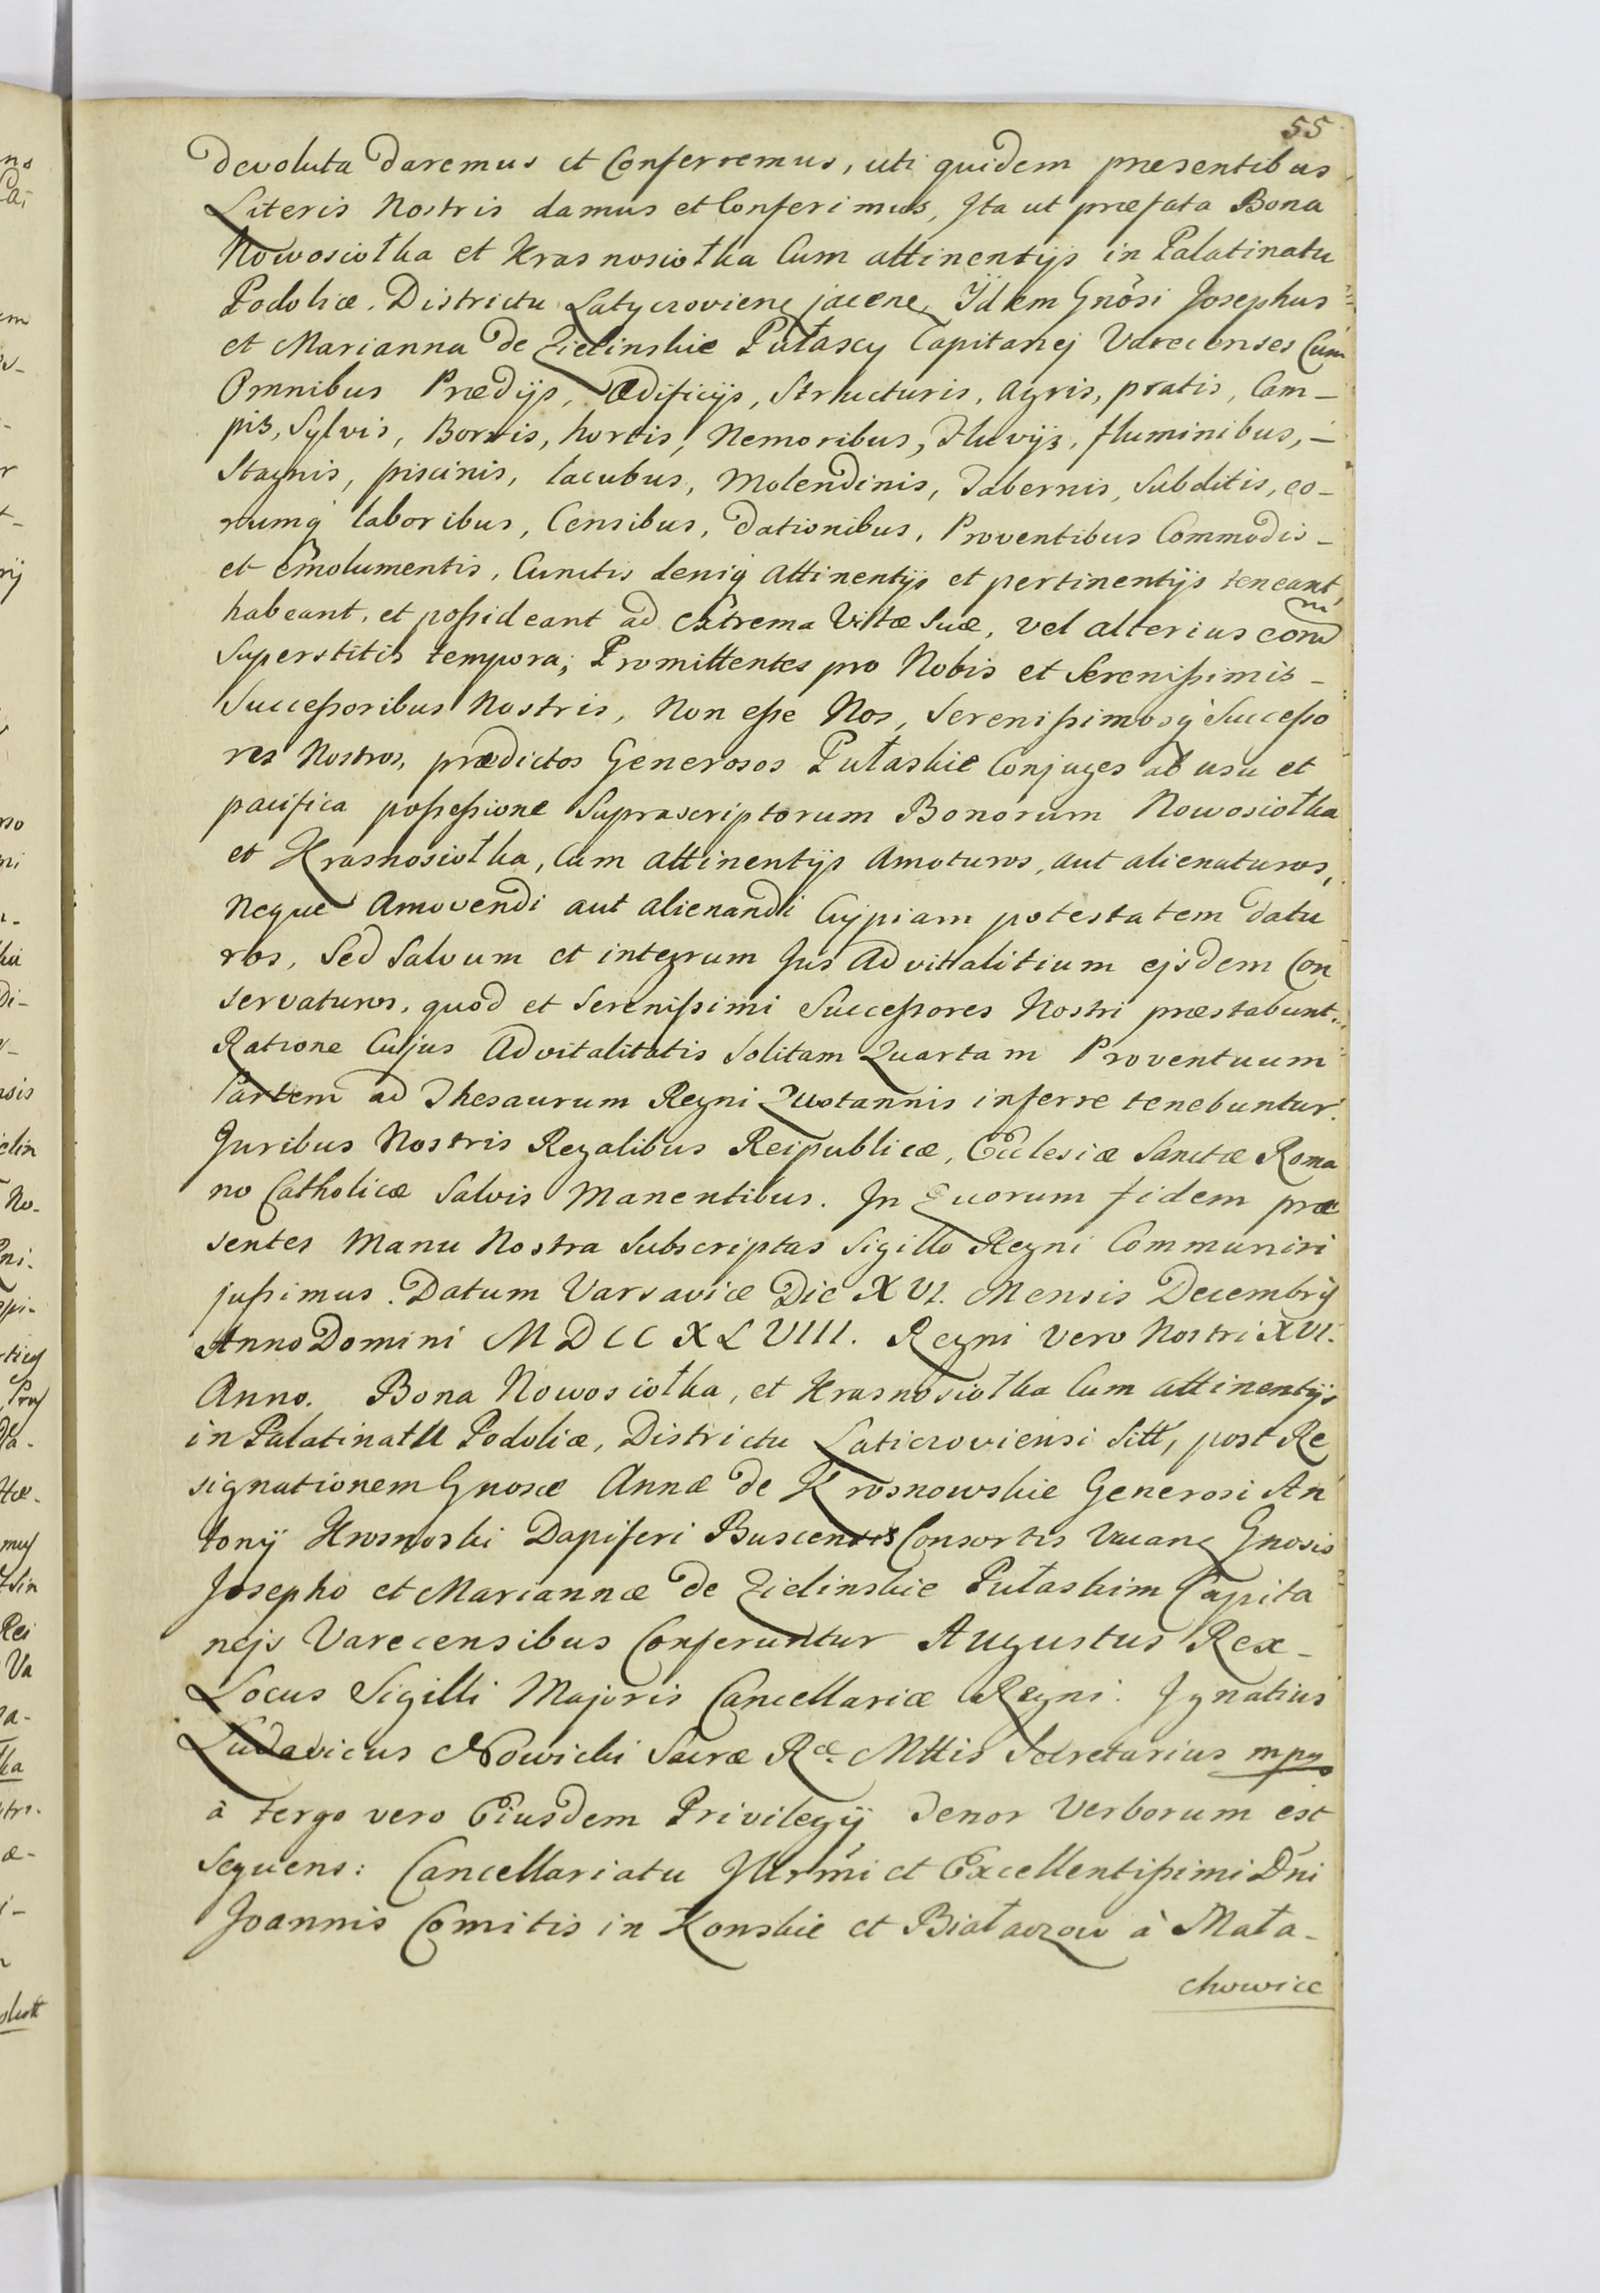 55
devoluta daremus et Conferremus, uti quidem præsentibus
Literis Nostris damus et Conferimus, Jta ut præfata Bona
Nowosiołka et Krasnosiołka Cum attinentijs in Palatinatu
Podoliæ. Districtu Latyczovienẹ jacenẹ Jidem Gnõsi Josephus
et Marianna de Zielinskie Pułascy Capitanej Varecenses Cum
Omnibus Prædijs, Ædificijs, Structuris, agris, pratis, Cam-
pis, Sylvis, Borris, hortis, Nemoribus, Fluvijs, fluminibus, -
Stagnis, piscinis, lacubus, Molendinis, Tabernis, Subditis, eo-
rumq́ laboribus, Censibus, dationibus, Proventibus Commodis -
et emolumentis, Cunctis deniq́ attinentijs et pertinentijs teneant,
habeant, et possideant ad extrema Vitæ Suæ, vel alterius eorũ
Superstitis tempora; Promittentes pro Nobis et Serenissimis -
Successoribus Nostris, Non esse Nos, Serenissimosq́ Successo
res Nostros, prædictos Generosos Pułaskie Conjuges ab usu et
pacifica possessione Suprascriptorum Bonorum Nowosiołka
et Krasnosiołka, Cum attinentijs Amoturos, aut alienaturos,
Neque Amovendi aut alienandi Cujpiam potestatem datu
ros, Sed Salvum et integrum Jus Advitalitium ejsdem Con
servaturos, quod et Serenissimi Successores Nostri præstabunt.
Ratione Cujus Advitalitatis Solitam Quartam Proventuum
Partem ad Thesaurum Regni Quotannis inferre tenebuntur.
Juribus Nostris Regalibus Reipublicæ, Ecclesiæ Sanctæ Roma
no Catholicæ Salvis Manentibus. Jn Quorum fidem præ
sentes Manu Nostra Subscriptas Sigillo Regni Communiri
jussimus. Datum Varsaviæ Die XVI. Mensis Decembrij
Anno Domini MDCCXLVIII. Regni vero Nostri XVI.
Anno. Bona Nowosiołka, et Krasnosiołka Cum attinentijs
in Palatinatu Podoliæ, Districtu Laticzoviensi Sitt, post Re
signationem Gnosæ Annæ de Krosnowskie Generosi An
tonij Krosnoski Dapiferi Buscensis Consortis Vacanẹ Gnosis
Josepho et Mariannæ de Zielinskie Pułaskim Capita
nejs Varecensibus Conferuntur Augustus Rex -
Locus Sigilli Majoris Cancellariæ Regni. Jgnatius
Ludovicus Nowicki Sacræ Ræ. Mttis Secretarius mpp
à tergo vero Eiusdem Privilegij Tenor Verborum est
Sequens: Cancellariatu Jllrm̃i et Excellentissimi Dñi
Joannis Comitis in Konskie et Białaczow à Mała-
chowice